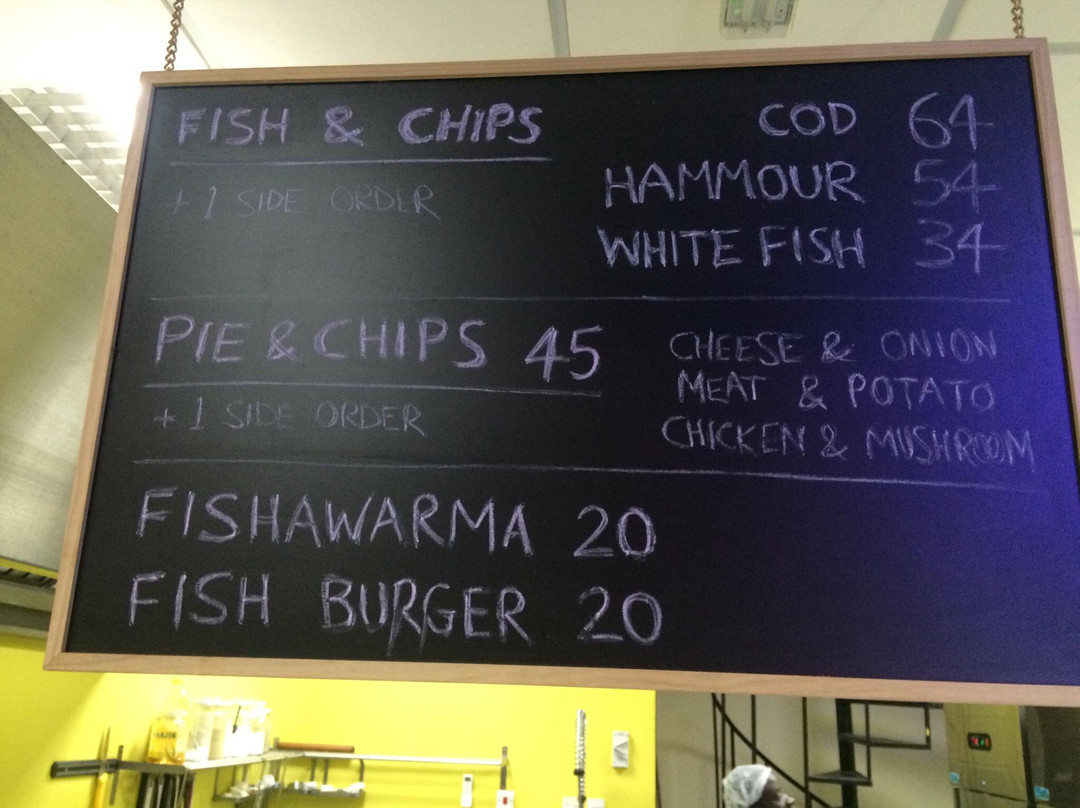 FISH & CHIPS
+ 1 SIDE ORDER
COD 64
HAMMOUR 54
WHITE FISH 34
PIE & CHIPS 45
+ 1 SIDE ORDER
CHEESE & ONION
MEAT & POTATO
CHICKEN & MUSHROOM
FISHAWARMA 20
FISH BURGER 20